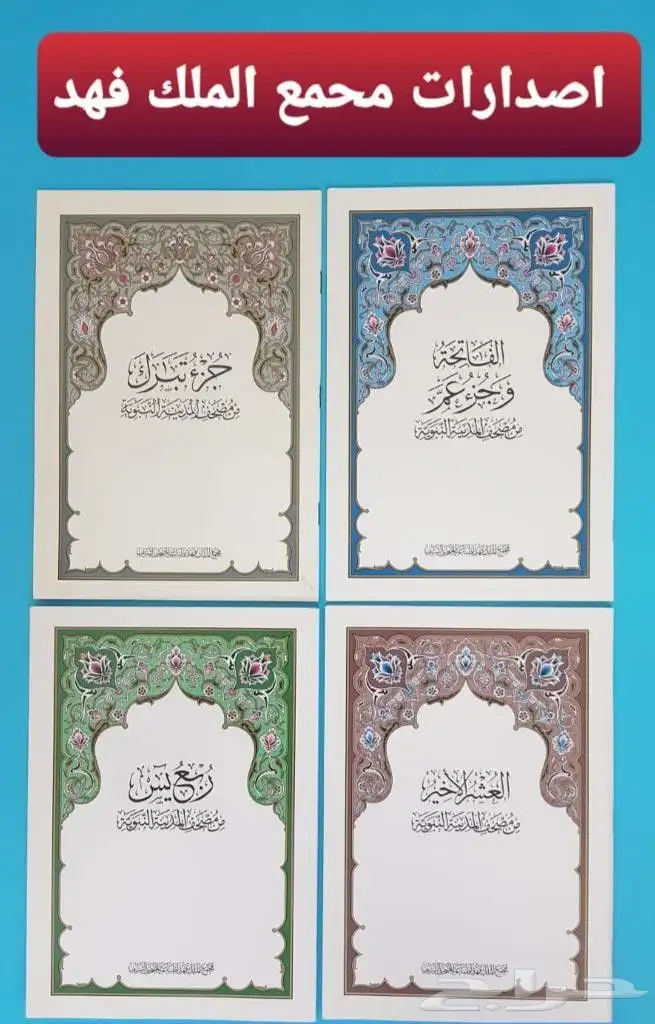 اصدارات محمع الملك فهد
الفَاتِحَةُ
وَجُزْءُ عَمَّ
مِن مُصْحَفِ المَدِينَةِ النَّبَوِيَّةِ
مجمع الملك فهد لطباعة المصحف الشريف
جُزْءُ تَبَٰرَكَ
مِن مُصْحَفِ المَدِينَةِ النَّبَوِيَّةِ
مجمع الملك فهد لطباعة المصحف الشريف
العُشْرُ الأَخِيرُ
مِن مُصْحَفِ المَدِينَةِ النَّبَوِيَّةِ
مجمع الملك فهد لطباعة المصحف الشريف
رُبْعُ يسٓ
مِن مُصْحَفِ المَدِينَةِ النَّبَوِيَّةِ
مجمع الملك فهد لطباعة المصحف الشريف
حراج